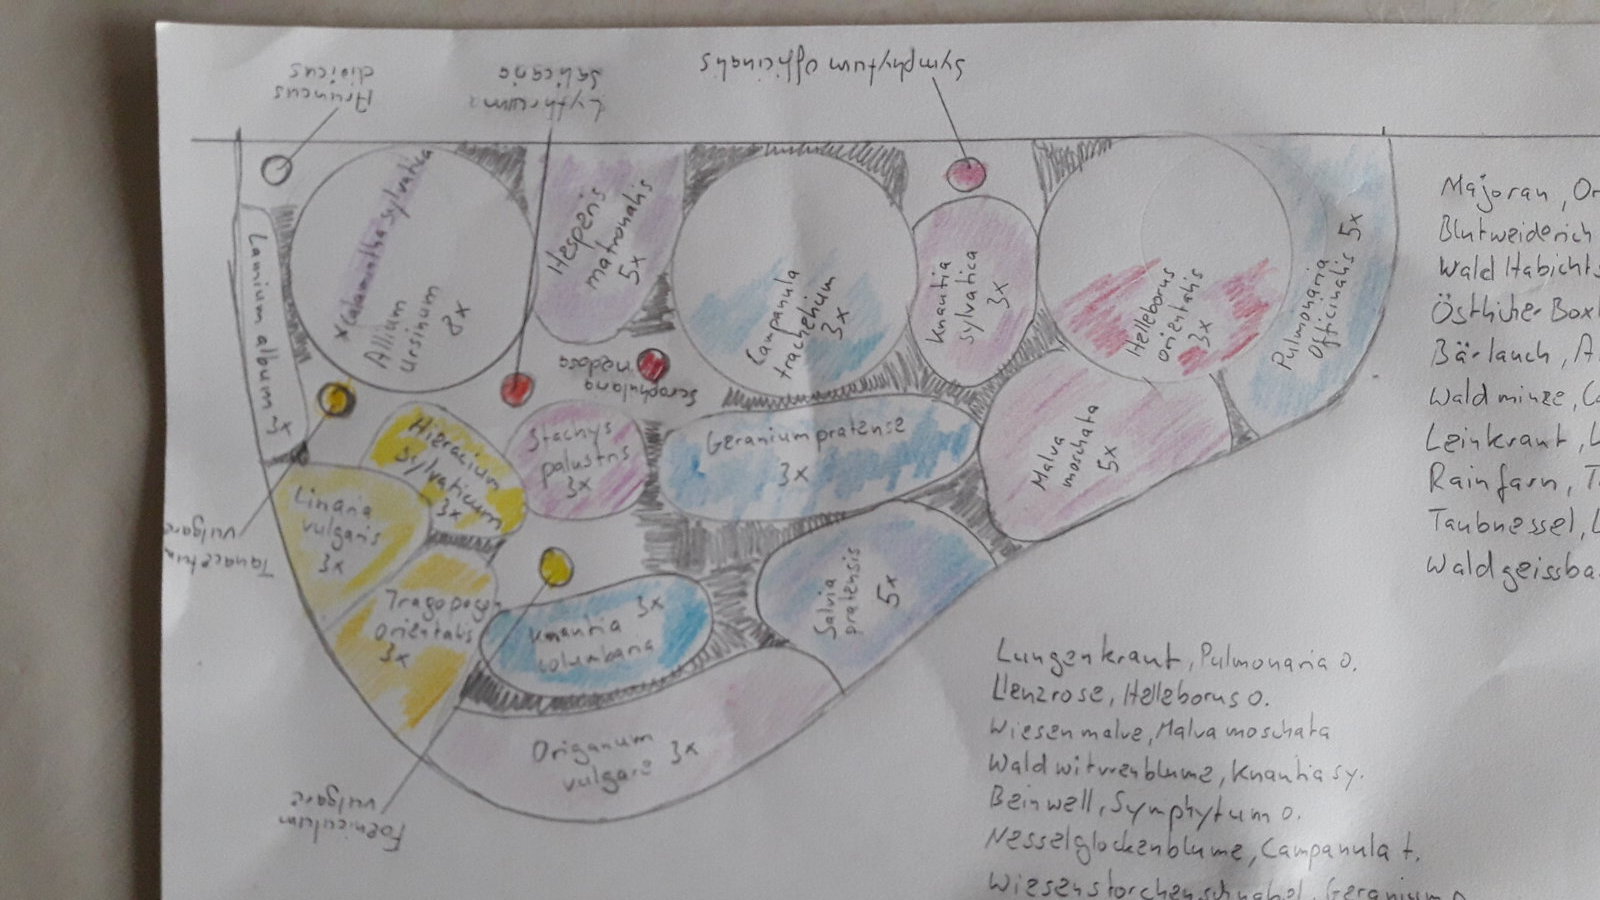 Aruncus
dioicus
Lythrum
salicaria
Symphytum officinalis
Lamium album 3x
x Calamintha sylvatica
Allium
Ursinum
8x
Hesperis
matronalis
5x
Campanula
trachelium
3x
Knautia
sylvatica
3x
Helleborus
orientalis
3x
Pulmonaria
officinalis
5x
Scrophularia
nodosa
Hieracium
sylvaticum
3x
Stachys
palustris
3x
Geranium pratense
3x
Malva
moschata
5x
Linaria
vulgaris
3x
Tanacetum
vulgare
Tragopogon
Orientalis
3x
Knautia 3x
columbaria
Salvia
pratensis
5x
Origanum
vulgare 3x
Foeniculum
vulgare
Majoran, Or
Blutweiderich
Wald Habichts
Östlicher Box
Bärlauch, A
Waldminze, Ca
Leinkraut, L
Rainfarn, T
Taubnessel, L
Waldgeissba
Lungenkraut, Pulmonaria o.
Lenzrose, Helleborus o.
Wiesenmalve, Malva moschata
Waldwitwenblume, Knautia sy.
Beinwell, Symphytum o.
Nesselglockenblume, Campanula t.
Wiesenstorchenschnabel, Geranium p